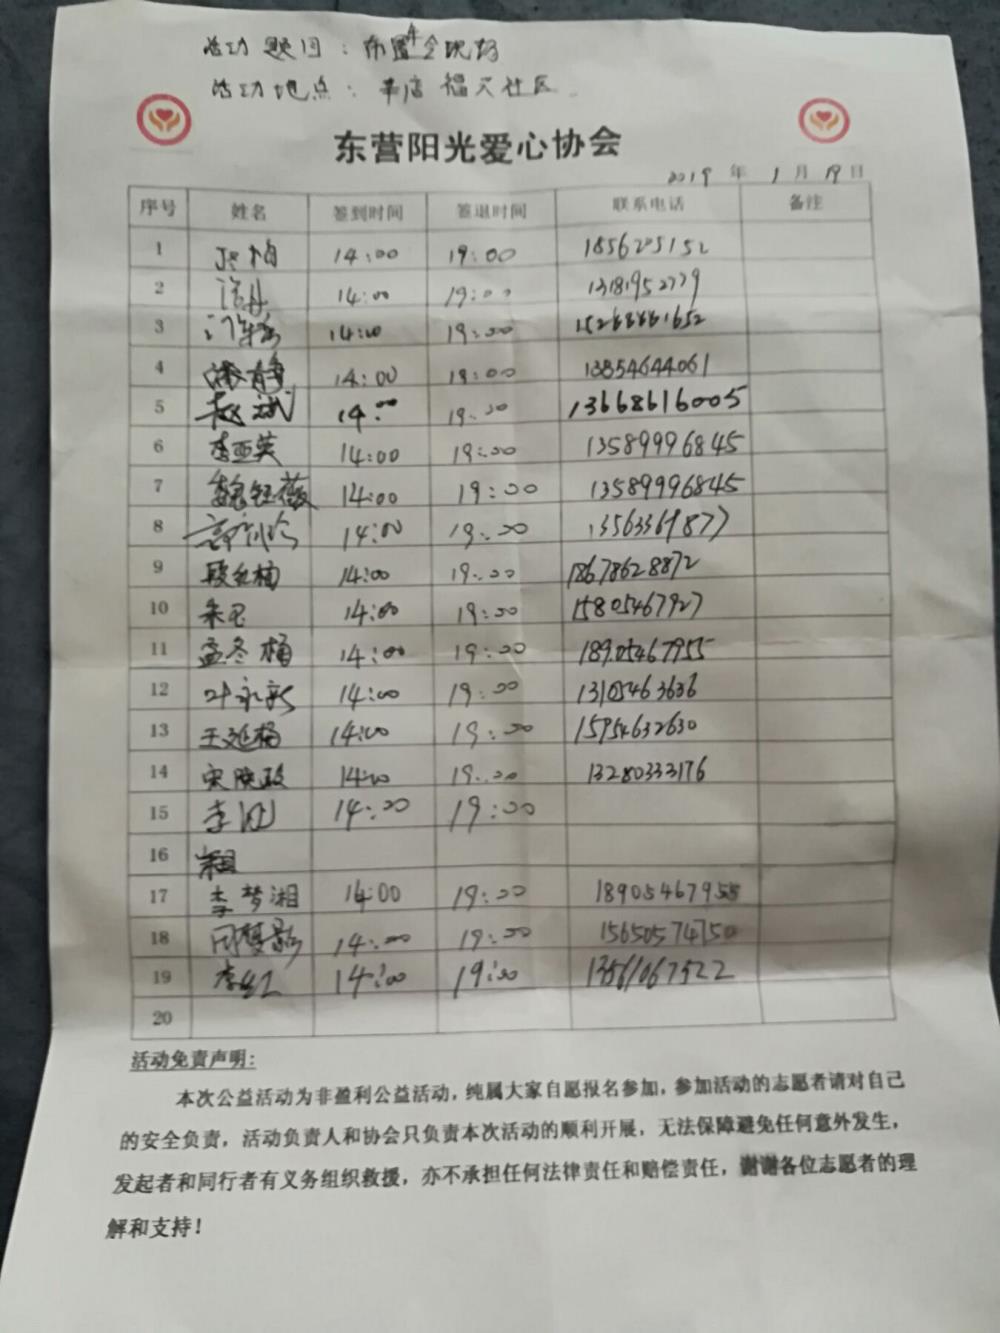 活动题目：布置年会现场
活动地点：辛店福天社区
东营阳光爱心协会
2019 年 1 月 19 日
序号 姓名 签到时间 签退时间 联系电话 备注
1 14:00 19:00 185625152
2 14:00 19:00 13181952779
3 14:00 19:00
4 14:00 19:00 13854644061
5 14:00 19:00 13668616005
6 李亚英 14:00 19:00 13589996845
7 魏钰薇 14:00 19:00 13589996845
8 14:00 19:00 13563369877
9 14:00 19:00 18678628872
10 14:00 19:00 15805467927
11 孟冬梅 14:00 19:00 18905467955
12 叶永新 14:00 19:00 13105463636
13 王延梅 14:00 19:00 15954632630
14 宋晓政 14:00 19:00 13280333176
15 李刚 14:00 19:00
16
17 李梦湘 14:00 19:00 18905467955
18 周慧影 14:00 19:00 15650574750
19 李红 14:00 19:00 13561067522
20
活动免责声明：
本次公益活动为非盈利公益活动，纯属大家自愿报名参加，参加活动的志愿者请对自己
的安全负责，活动负责人和协会只负责本次活动的顺利开展，无法保障避免任何意外发生，
发起者和同行者有义务组织救援，亦不承担任何法律责任和赔偿责任，谢谢各位志愿者的理
解和支持！